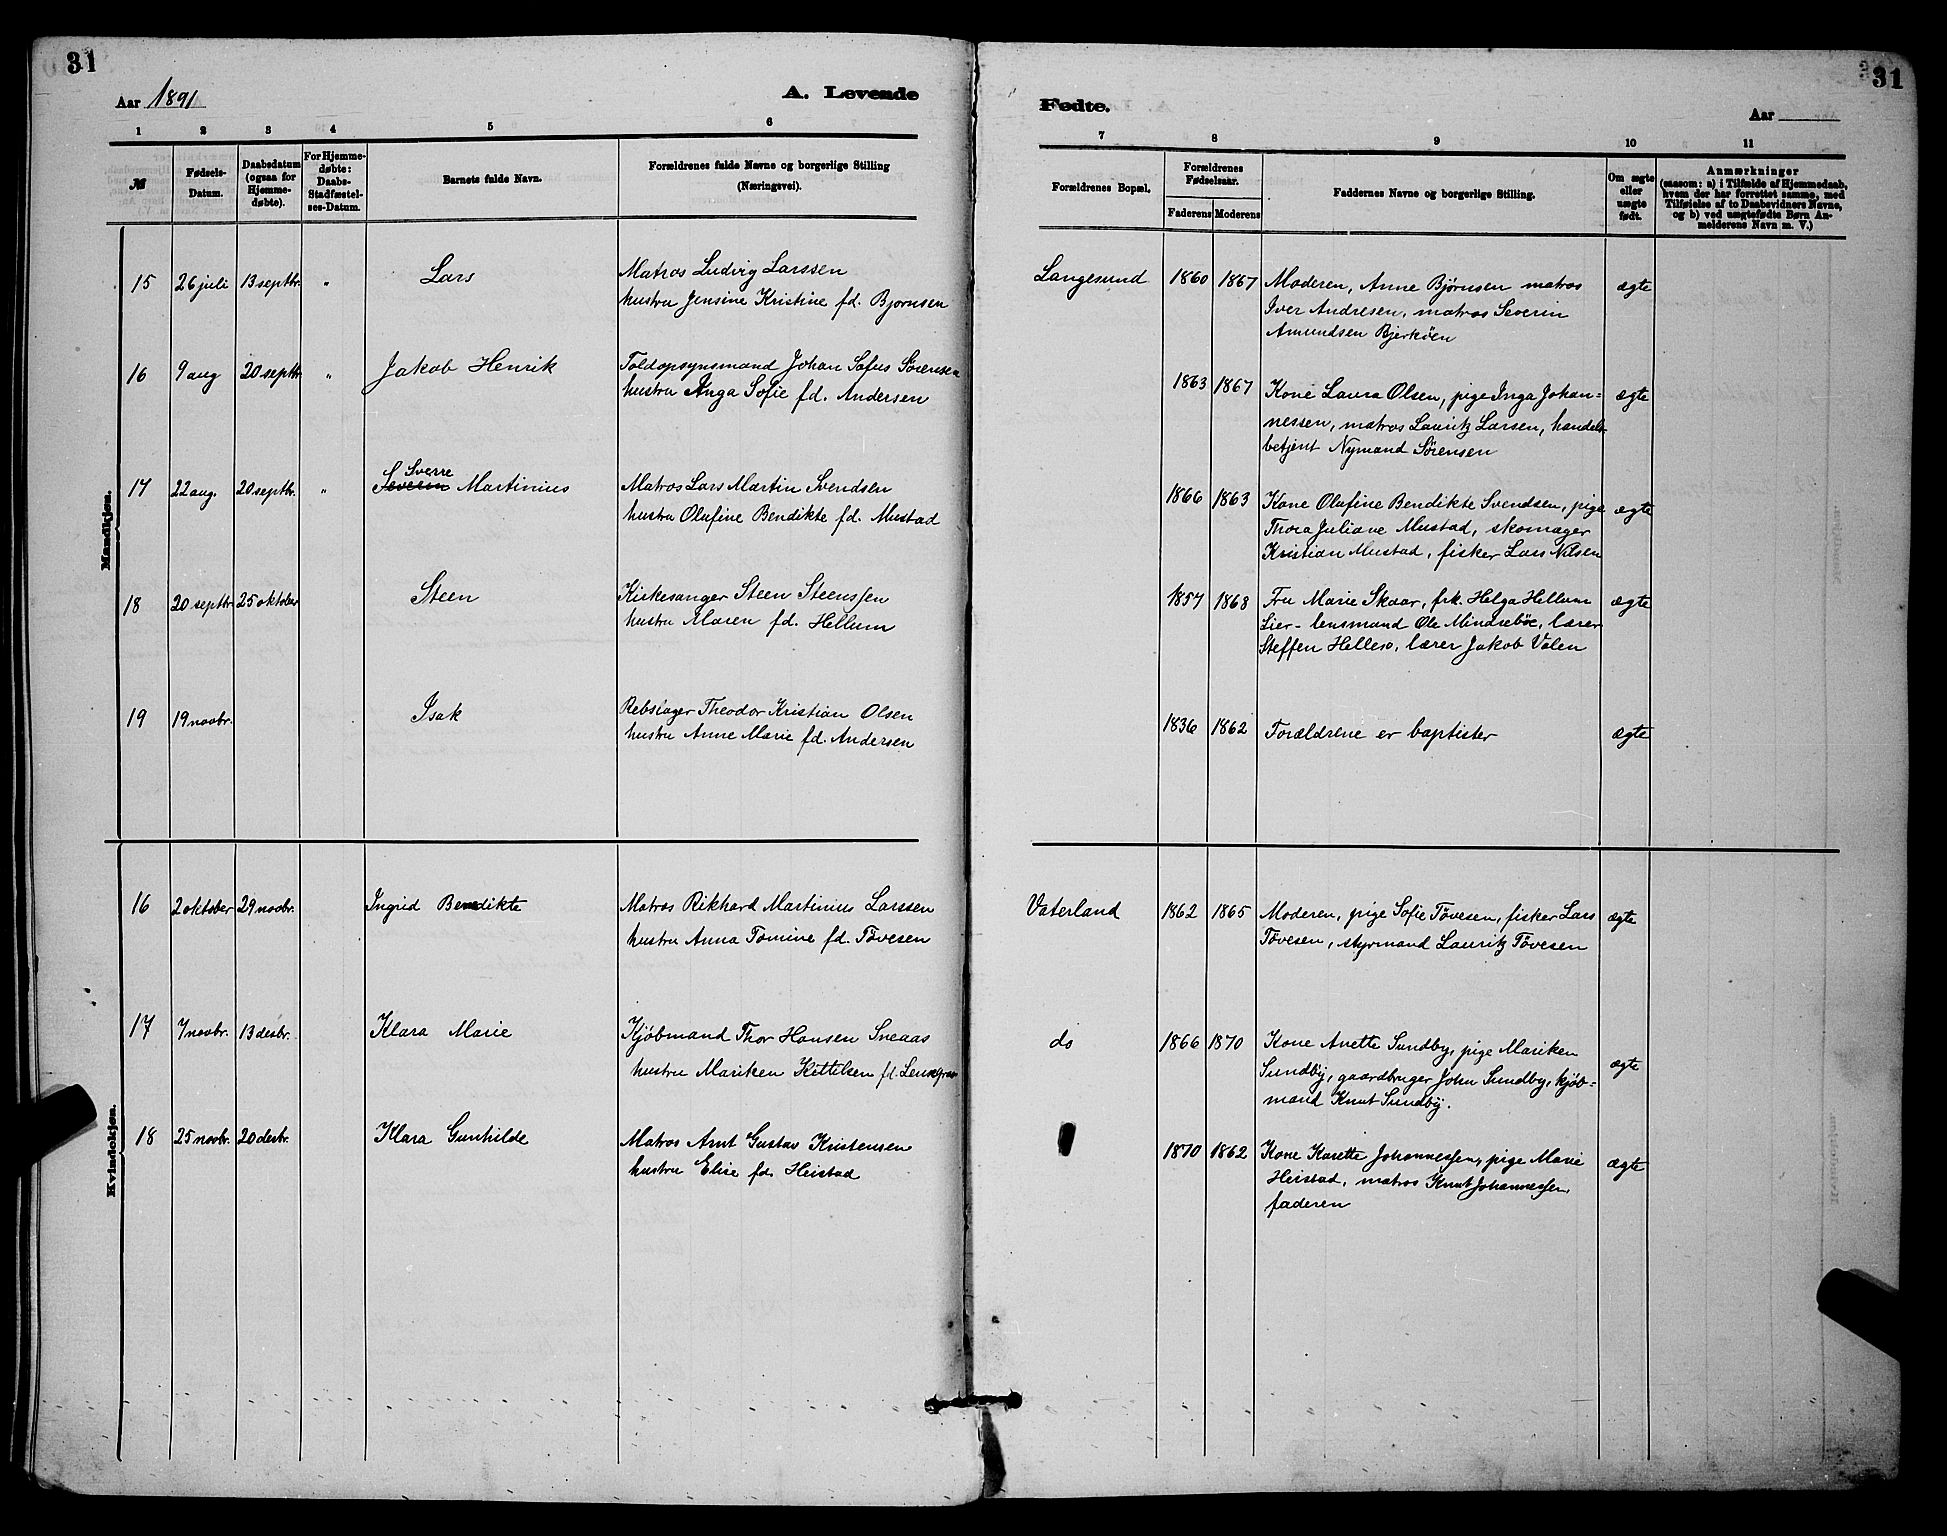 31
Aar 1891
A. Levende
1 2 3 4 5 6
№
Fødsels-
Datum.
Daabsdatum
(ogsaa for
Hjemme-
døbte).
For Hjemme-
døbte:
Daabs-
Stadfæstel-
ses-Datum.
Barnets fulde Navn.
Forældrenes fulde Navne og borgerlige Stilling
(Næringsvei).
Mandkjøn.
15 26 juli 13 septbr. " Lars Matros Ludvig Larssen
hustru Jensine Kristine fd. Bjørnsen
16 9 aug 20 septbr " Jakob Henrik Toldopsynsmand Johan Sofus Sörensen
hustru Anga Sofie fd. Andersen
Sverre
17 22 aug. 20 septbr. " Severin Martinius Matros Lars Martin Svendsen
hustru Olufine Bendikte fd. Mustad
18 20 septbr 25 oktober Steen Kirkesanger Steen Steenssen
hustru Maren fd. Hellum
19 19 novbr. Isak Rebslager Theodor Kristian Olsen
hustru Anne Marie fd. Andersen
Kvindekjøn.
16 2 oktober 29 novbr. Ingrid Bendikte Matros Rikhard Martinius Larssen
hustru Anna Tomine fd. Tövesen
17 7 novbr. 13 desbr. Klara Marie Kjöbmand Thor Hansen Sneaas
hustru Mariken Kittilsen fd.
18 25 novbr. 20 desbr. Klara Gunhilde Matros Arnt Gustav Kristensen
hustru Elise fd. Heistad
31
Fødte.
Aar
7 8 9 10 11
Forældrenes Bopæl.
Forældrenes
Fødselsaar.
Faderens Moderens
Faddernes Navne og borgerlige Stilling.
Om ægte
eller
uægte
født.
Anmærkninger
(saasom: a) i Tilfælde af Hjemmedaab,
hvem der har forrettet samme, med
Tilføielse af to Daabsvidners Navne,
og b) ved uægtefødte Børn An-
melderens Navn m. V.)
Langesund 1860 1867 Moderen, Anne Bjørnsen matros ægte
Iver Andresen, matros Severin
Amundsen Bjerköen
1863 1867 Kone Laura Olsen, pige Inga Johan- ægte
nessen, matros Lauritz Larsen, handels-
betjent Nymand Sörensen
1866 1863 Kone Olufine Bendikte Svendsen, pige ægte
Thora Juliane Mustad, skomager
Kristian Mustad, fisker Lars Nilsen
1857 1868 Fru Marie Skaar, frk. Helga Hellum ægte
Lier – lensmand Ole Mindrebö, lærer
Steffen Helleso, lærer Jakob Valen
1836 1862 Forældrene er baptister ægte
Vaterland 1862 1865 Moderen, pige Sofie Tövesen, fisker Lars ægte
Tövesen, styrmand Lauritz Tövesen
do 1866 1870 Kone Anette Sundby, pige Mariken ægte
Sundby, gaardbruger John Sundby, kjöb-
mand Knut Sundby.
1870 1862 Kone Karette Johannessen, pige Marie ægte
Heistad, matros Knut Johannessen,
faderen